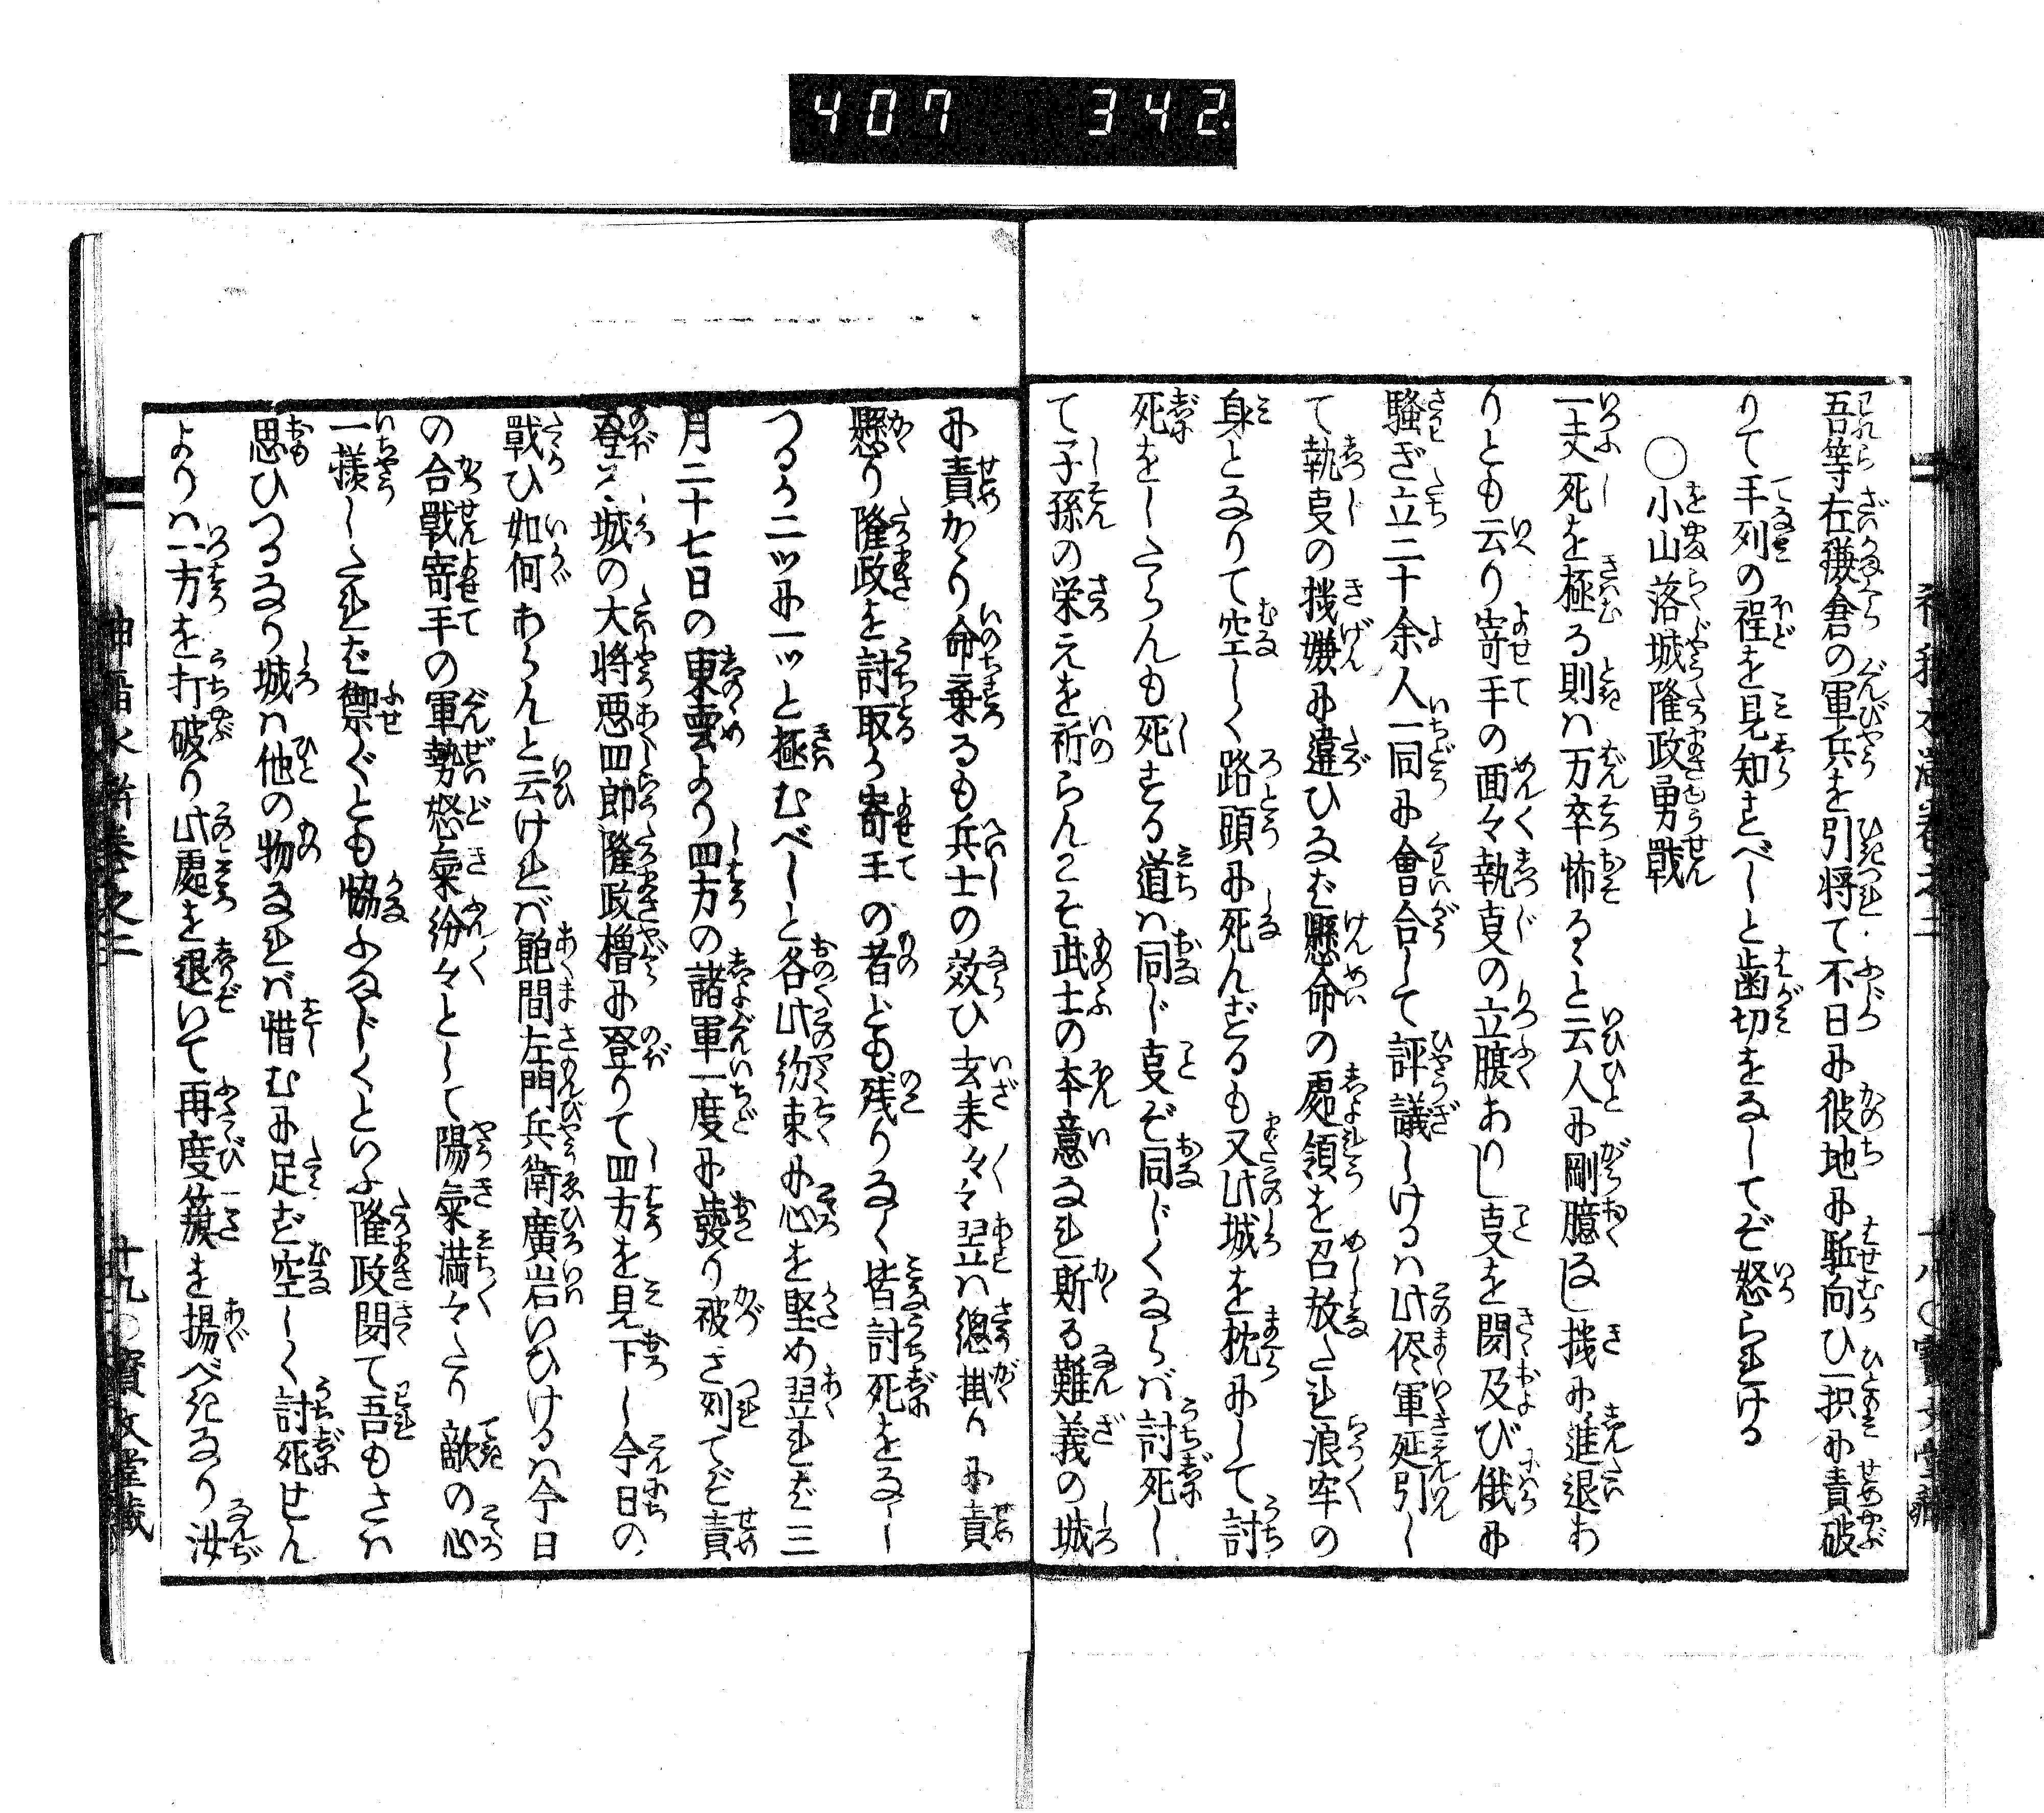 407 342.
吾等在鎌倉の軍兵を引将て不日に彼地に駈向ひ一択に責破
りて手列の程を見知すべしと歯切をなしてぞ怒られける
○小山落城隆政勇戰
一夫死を極る則ハ万卒怖るゝと云人に剛臆なし機に進退あ
りとも云り寄手の面々執㕝の立腹ありし㕝を聞及び俄に
騒ぎ立二十余人一同に會合して評議しけるハ此侭軍延引し
て執㕝の機嫌に違ひなば懸命の處領を召放たれ浪牢の
身となりて空しく路頭に死んずるも又此城を枕にして討
死をしたらんも死する道ハ同じ㕝ぞ同じくならバ討死し
て子孫の栄えを祈らんこそ武士の本意なれ斯る難義の城
に責かゝり命棄るも兵士の效ひ去来々々翌ハ總掛りに責
懸り隆政を討取か寄手の者ども残りなく皆討死をなし
つるか二ツに一ツと極むべしと各此約束に心を堅め翌れば三
月二十七日の東雲より四方の諸軍一度に發り被き列てぞ責
登る城の大将悪四郎隆政櫓に登りて四方を見下し今日の
戰ひ如何あらんと云ければ飽間左門兵衛廣岩いひけるハ今日
の合戰寄手の軍勢怒氣紛々として陽氣満々たり敵の心
一様したれば禦ぐとも恊ふまじくといふ隆政聞て吾もさハ
思ひつるなり城ハ他の物なれバ惜むに足ず空しく討死せん
よりハ一方を打破り此處を退いて再度籏を揚べきなり汝
十九○寳文堂蔵